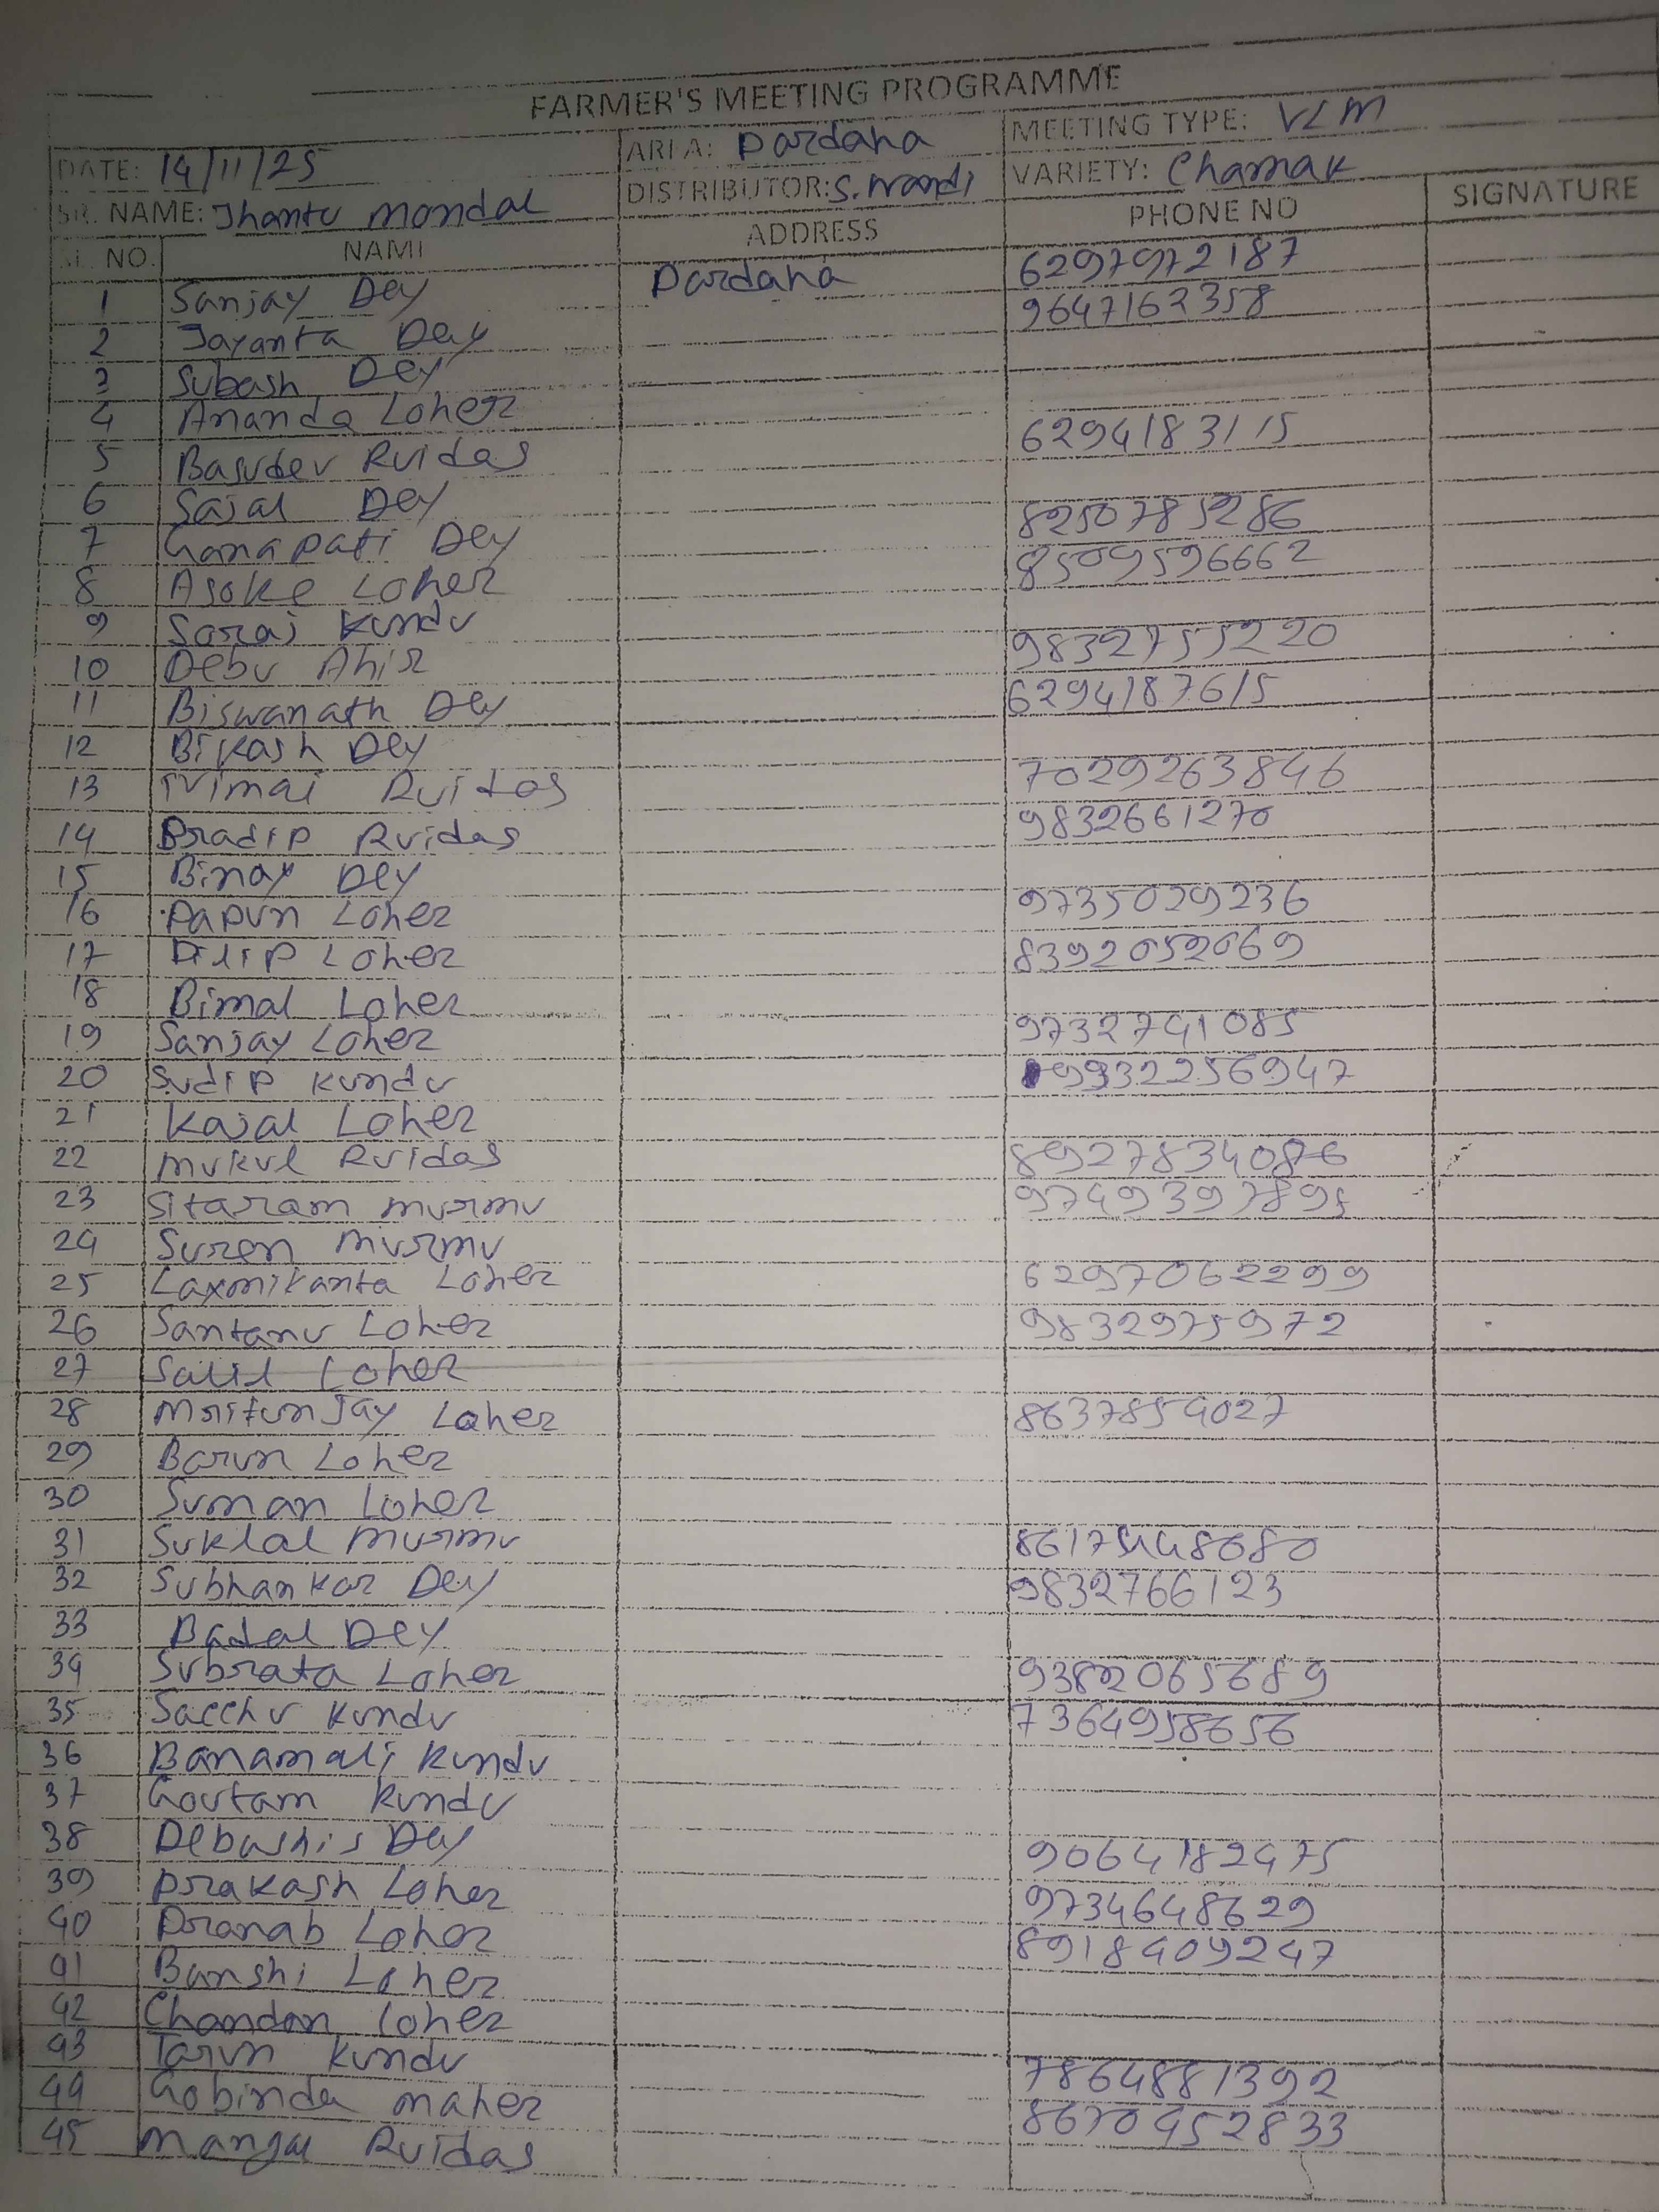 FARMER'S MEETING PROGRAMME
DATE: 14/11/25 AREA: Dardana MEETING TYPE: VLM
SR. NAME: Jhantu Mondal DISTRIBUTOR: S. Nandi VARIETY: Chamak
SL. NO. NAME ADDRESS PHONE NO SIGNATURE
1 Sanjay Dey Dardana 6297972187
2 Jayanta Dey 9647162358
3 Subash Dey
4 Ananda Loher
5 Basudev Ruidas 6294183115
6 Sajal Dey
7 Ganapati Dey 8250785286
8 Asoke Loher 8509596662
9 Saroj Kundu
10 Debu Ahir 9832755220
11 Biswanath Dey 6294187615
12 Bikash Dey
13 Nimai Ruidas 7029263846
14 Pradip Ruidas 9832661270
15 Binay Dey
16 Papun Loher 9735029236
17 Dilip Loher 8392052069
18 Bimal Loher
19 Sanjay Loher 9732741085
20 Sudip Kundu 9932256947
21 Kajal Loher
22 Mukul Ruidas 8927834086
23 Sitaram Murmu 9749397895
24 Suren Murmu
25 Laxmikanta Loher 6297062299
26 Santanu Loher 9832975972
27 Salil Loher
28 Mritunjay Loher 8637854027
29 Barun Loher
30 Suman Loher
31 Suklal Murmu
32 Subhankar Dey 9832766123
33 Badal Dey
34 Subrata Loher 9382065689
35 Sacchu Kundu 7364958656
36 Banamali Kundu
37 Goutam Kundu
38 Debashis Dey 9064182475
39 Prakash Loher 9734648629
40 Pranab Loher 8918409247
41 Banshi Loher
42 Chandan Loher
43 Tarun Kundu 7864881392
44 Gobinda Maher 8670452833
45 Mangal Ruidas